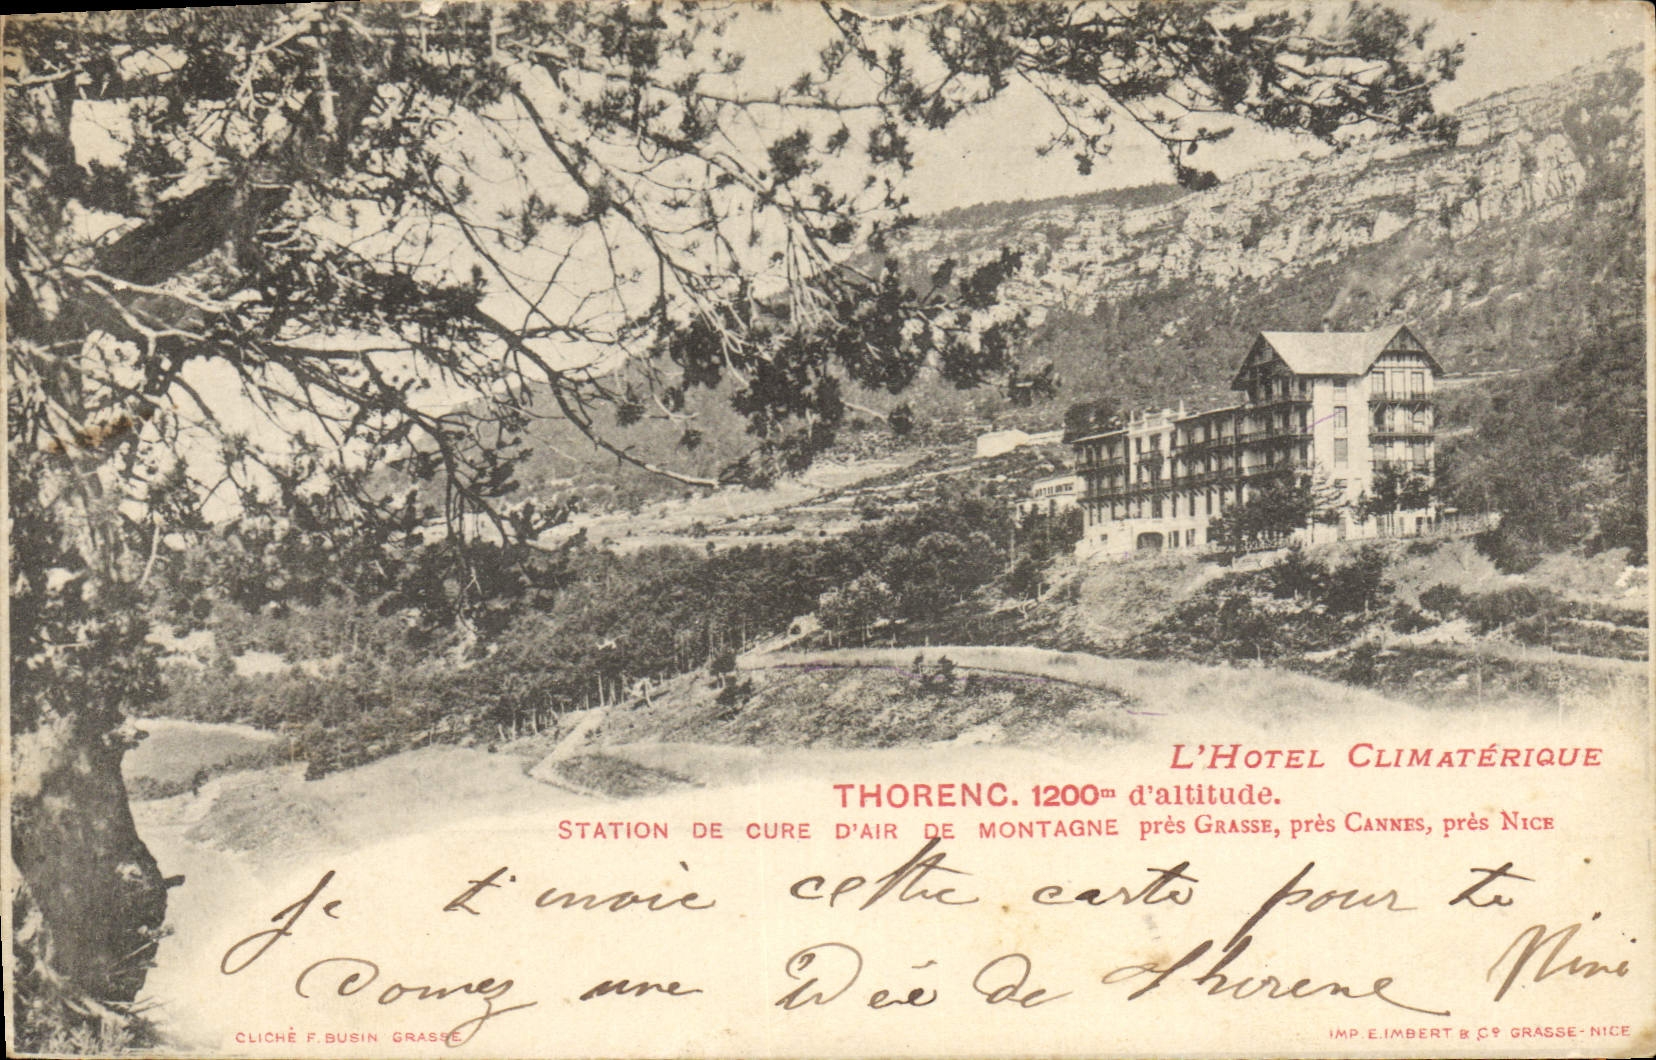 L'HOTEL CLIMATÉRIQUE
THORENC. 1200m d'altitude.
STATION DE CURE D'AIR DE MONTAGNE près GRASSE, près CANNES, près NICE
Je t'invoie cette carte pour te
donnez une idée de Thorenc Nini
CLICHÉ F. BUSIN GRASSE
IMP. E. IMBERT & Co GRASSE-NICE